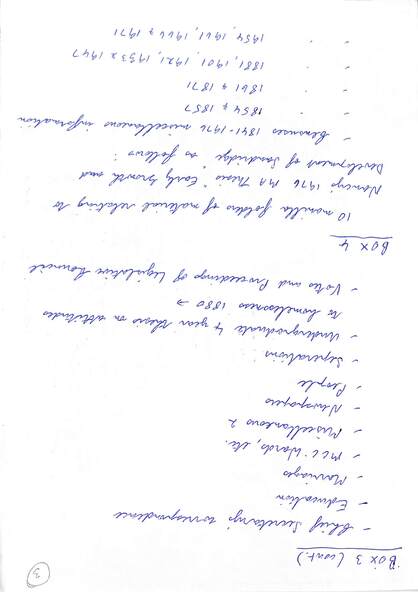 3
Box 3 (cont.)
- Chief Secretary's correspondence
- Education
- Marriages
- MCC Wards, etc.
- Miscellaneous 2
- Newspapers
- People
- Seperations
- Undergraduate 4 year thesis on attitudes
to homelessness 1880 →
- Votes and Proceedings of Legislative Council
Box 4
10 manilla folders of material relating to
Nancy's 1976 MA Thesis "Early Growth and
Development of Sandridge" as follows:
- Censuses 1841-1976 miscellaneous information
" 1854 & 1857
" 1861 & 1871
" 1881, 1901, 1921, 1933 & 1947
" 1954, 1961, 1966 & 1971